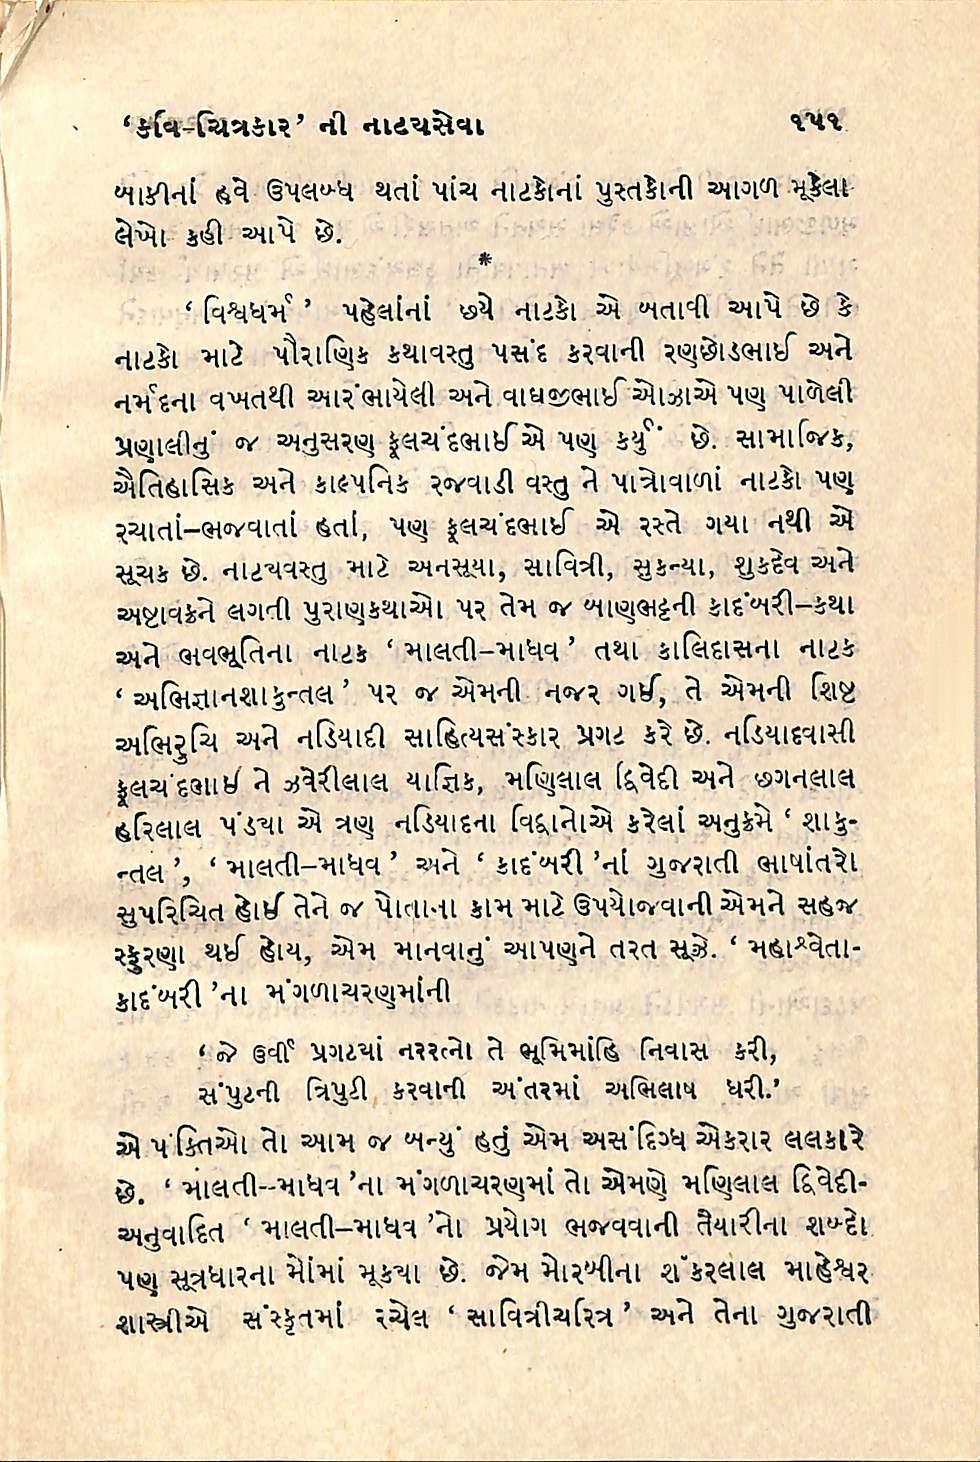 ‘કવિ-ચિત્રકાર’ ની નાટ્યસેવા ૧૫૧
બાકીનાં હવે ઉપલબ્ધ થતાં પાંચ નાટકોનાં પુસ્તકોની આગળ મૂકેલા
લેખો કહી આપે છે.
*
‘વિશ્વધર્મ’ પહેલાંનાં છયે નાટકો એ બતાવી આપે છે કે
નાટકો માટે પૌરાણિક કથાવસ્તુ પસંદ કરવાની રણછોડભાઈ અને
નર્મદના વખતથી આરંભાયેલી અને વાઘજીભાઈ ઓઝાએ પણ પાળેલી
પ્રણાલીનું જ અનુસરણ ફૂલચંદભાઈએ પણ કર્યું છે. સામાજિક,
ઐતિહાસિક અને કાલ્પનિક રજવાડી વસ્તુ ને પાત્રોવાળાં નાટકો પણ
રચાતાં–ભજવાતાં હતાં, પણ ફૂલચંદભાઈ એ રસ્તે ગયા નથી એ
સૂચક છે. નાટ્યવસ્તુ માટે અનસૂયા, સાવિત્રી, સુકન્યા, શુકદેવ અને
અષ્ટાવક્રને લગતી પુરાણકથાઓ પર તેમ જ બાણભટ્ટની કાદંબરી–કથા
અને ભવભૂતિના નાટક ‘માલતી–માધવ’ તથા કાલિદાસના નાટક
‘અભિજ્ઞાનશાકુન્તલ’ પર જ એમની નજર ગઈ, તે એમની શિષ્ટ
અભિરુચિ અને નડિયાદી સાહિત્યસંસ્કાર પ્રગટ કરે છે. નડિયાદવાસી
ફૂલચંદભાઈ ને ઝવેરીલાલ યાજ્ઞિક, મણિલાલ દ્વિવેદી અને છગનલાલ
હરિલાલ પંડ્યા એ ત્રણ નડિયાદના વિદ્વાનોએ કરેલાં અનુક્રમે ‘શાકુ-
ન્તલ’, ‘માલતી–માધવ’ અને ‘કાદંબરી’નાં ગુજરાતી ભાષાંતરો
સુપરિચિત હોઈ તેને જ પોતાના કામ માટે ઉપયોજવાની એમને સહજ
સ્ફુરણા થઈ હોય, એમ માનવાનું આપણને તરત સૂઝે. ‘મહાશ્વેતા-
કાદંબરી’ના મંગળાચરણમાંની
‘જે ઉર્વી પ્રગટ્યાં નરરત્નો તે ભૂમિમાંહિ નિવાસ કરી,
સંપુટની ત્રિપુટી કરવાની અંતરમાં અભિલાષ ધરી.’
એ પંક્તિઓ તો આમ જ બન્યું હતું એમ અસંદિગ્ધ એકરાર લલકારે
છે. ‘માલતી--માધવ’ના મંગળાચરણમાં તો એમણે મણિલાલ દ્વિવેદી-
અનુવાદિત ‘માલતી–માધવ’નો પ્રયોગ ભજવવાની તૈયારીના શબ્દો
પણ સૂત્રધારના મોંમાં મૂક્યા છે. જેમ મોરબીના શંકરલાલ માહેશ્વર
શાસ્ત્રીએ સંસ્કૃતમાં રચેલ ‘સાવિત્રીચરિત્ર’ અને તેના ગુજરાતી